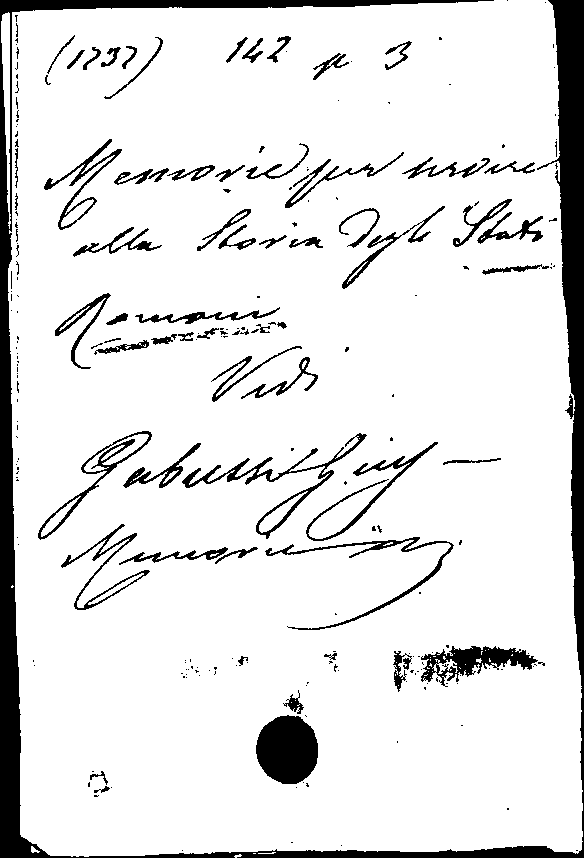 (1737) 142 p 3
Memorie per servire
alla Storia degli Stati
Romani
Vidi
Gabussi Giu
Memorie